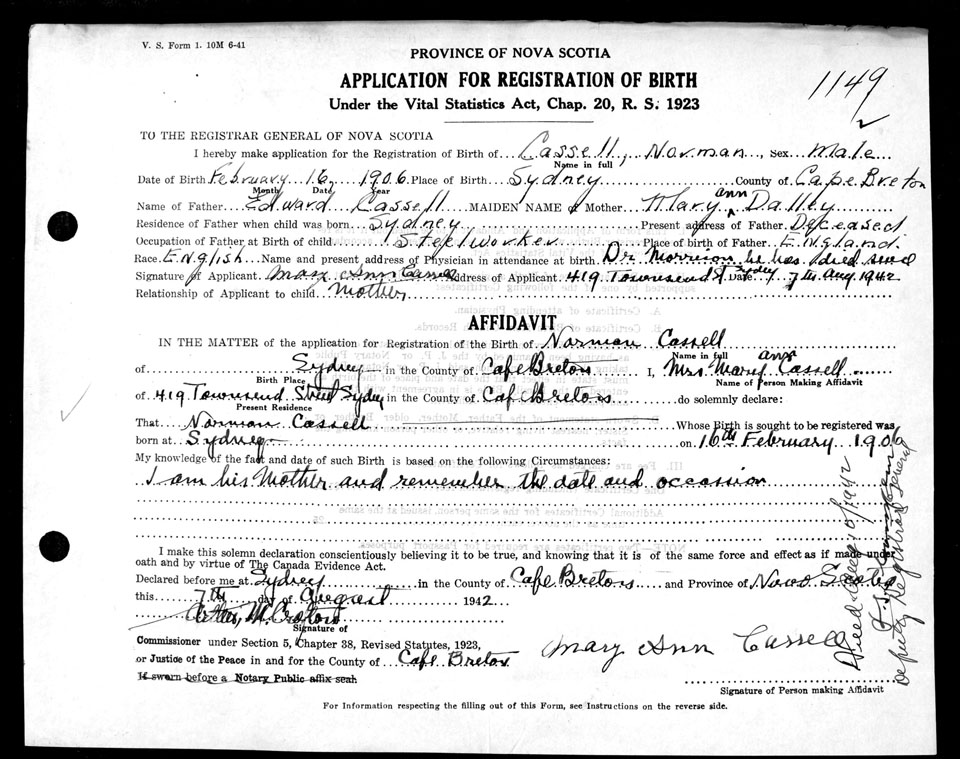 V. S. Form 1. 10M 6-41
PROVINCE OF NOVA SCOTIA
APPLICATION FOR REGISTRATION OF BIRTH
Under the Vital Statistics Act, Chap. 20, R. S. 1923
1149
TO THE REGISTRAR GENERAL OF NOVA SCOTIA
I hereby make application for the Registration of Birth of Cassell, Norman, Sex Male
Name in full
Date of Birth February 16 1906 Place of Birth Sydney County of Cape Breton
Month Date Year
Name of Father Edward Cassell MAIDEN NAME of Mother Mary Ann Dalley
Residence of Father when child was born Sydney Present address of Father Deceased
Occupation of Father at Birth of child Steelworker Place of birth of Father England.
Race English Name and present address of Physician in attendance at birth Dr Morrison he has died since
Signature of Applicant Mary Ann Cassell Address of Applicant 419 Townsend St Sydney Date 7th Aug 1942
Relationship of Applicant to child Mother
AFFIDAVIT
IN THE MATTER of the application for Registration of the Birth of Norman Cassell
Name in full
of Sydney in the County of Cape Breton I, Mrs Mary Ann Cassell
Birth Place Name of Person Making Affidavit
of 419 Townsend Street Sydney in the County of Cape Breton do solemnly declare:
Present Residence
That Norman Cassell Whose Birth is sought to be registered was
born at Sydney on 16th February 1906
My knowledge of the fact and date of such Birth is based on the following Circumstances:
I am his Mother and remember the date and occassion
I make this solemn declaration conscientiously believing it to be true, and knowing that it is of the same force and effect as if made under
oath and by virtue of The Canada Evidence Act.
Declared before me at Sydney in the County of Cape Breton and Province of Nova Scotia
this 7th day of August 1942
Signature of
Commissioner under Section 5, Chapter 38, Revised Statutes, 1923,
or Justice of the Peace in and for the County of Cape Breton
If sworn before a Notary Public affix seal
Mary Ann Cassell
Signature of Person making Affidavit
For Information respecting the filling out of this Form, see Instructions on the reverse side.
Deputy Registrar General